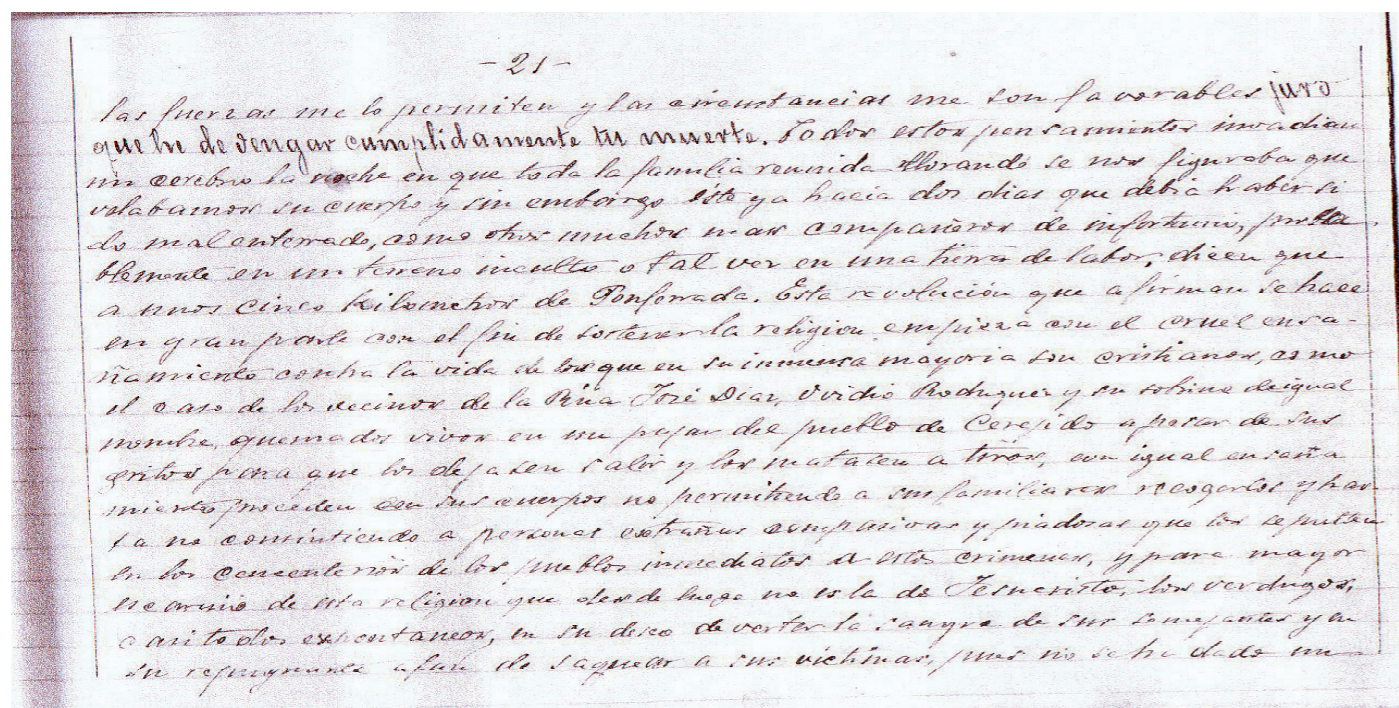 - 21 -
las fuerzas me lo permiten y las circunstancias me son favorables juro
que he de vengar cumplidamente tu muerte. Todos estos pensamientos invadian
mi cerebro la noche en que toda la familia reunida llorando se nos figuraba que
velabamos su cuerpo y sin embargo éste ya hacia dos dias que debia haber si
do mal enterrado, como otros muchos mas compañeros de infortunio,
blemente en un terreno inculto o tal vez en una tierra de labor, dicen que
a unos cinco kilometros de Ponferrada. Esta revolución que afirman se hace
en gran parte con el fin de sostener la religion empieza con el cruel ensa-
ñamiento contra la vida de los que en su inmensa mayoria son cristianos, como
el caso de los vecinos de la Rúa José Diaz, Ovidio Rodriguez y su sobrino de igual
nombre, quemados vivos en un pajar del pueblo de Cerejido apesar de sus
gritos para que los dejasen salir y los matasen a tiros, con igual ensaña
miento proceden con sus cuerpos no permitiendo a sus familiares recogerlos y has
ta no consintiendo a personas extrañas compasivas y piadosas que los sepulten
en los cementerios de los pueblos inmediatos a estos crimenes, y para mayor
escarnio de esta religion que desde luego no es la de Jesucristo, los verdugos,
casi todos expontaneos, en su deseo de verter la sangre de sus semejantes y en
su repugnante afan de saquear a sus victimas, pues no se ha dado un